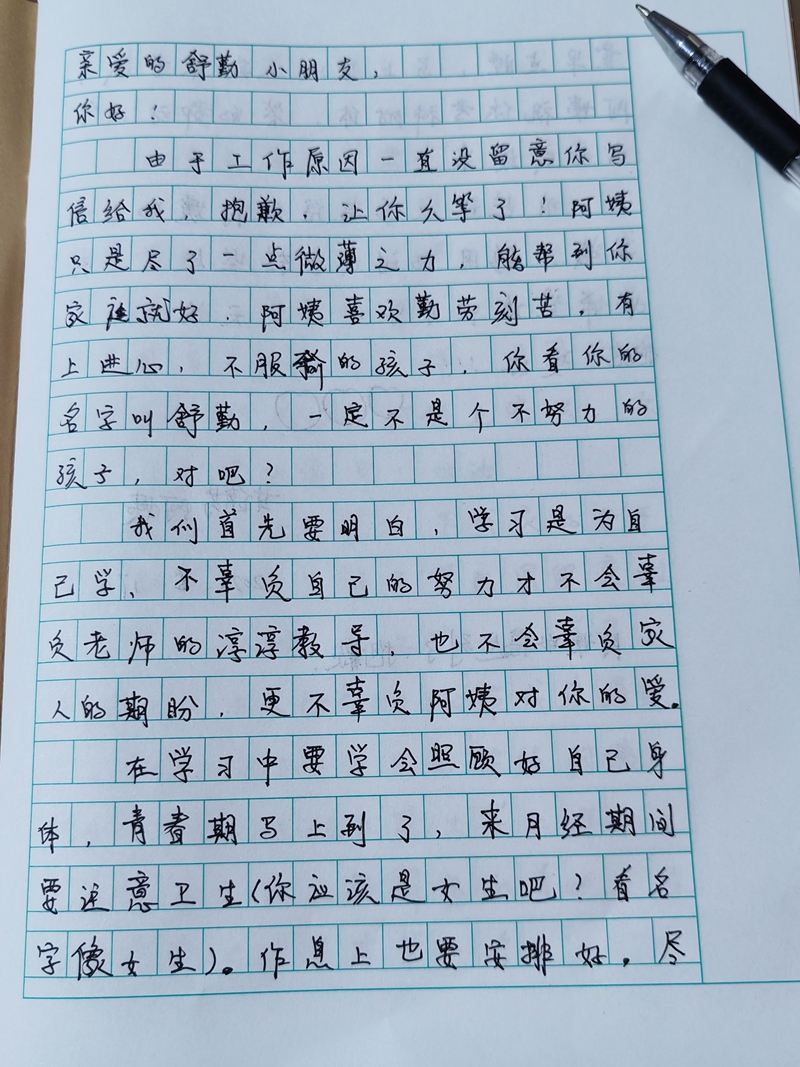 亲爱的舒勤小朋友,
你好!
由于工作原因一直没留意你写
信给我,抱歉,让你久等了!阿姨
只是尽了一点微薄之力,能帮到你
家就好.阿姨喜欢勤劳刻苦,有
上进心,不服输的孩子.你看你的
名字叫舒勤,一定不是个不努力的
孩子,对吧?
我们首先要明白,学习是为自
己学、不辜负自己的努力才不会辜
负老师的淳淳教导,也不会辜负家
人的期盼,更不辜负阿姨对你的爱。
在学习中要学会照顾好自己身
体,青春期写上到了,来月经期间
要注意卫生(你应该是女生吧?看名
字像女生)。作息上也要安排好.尽